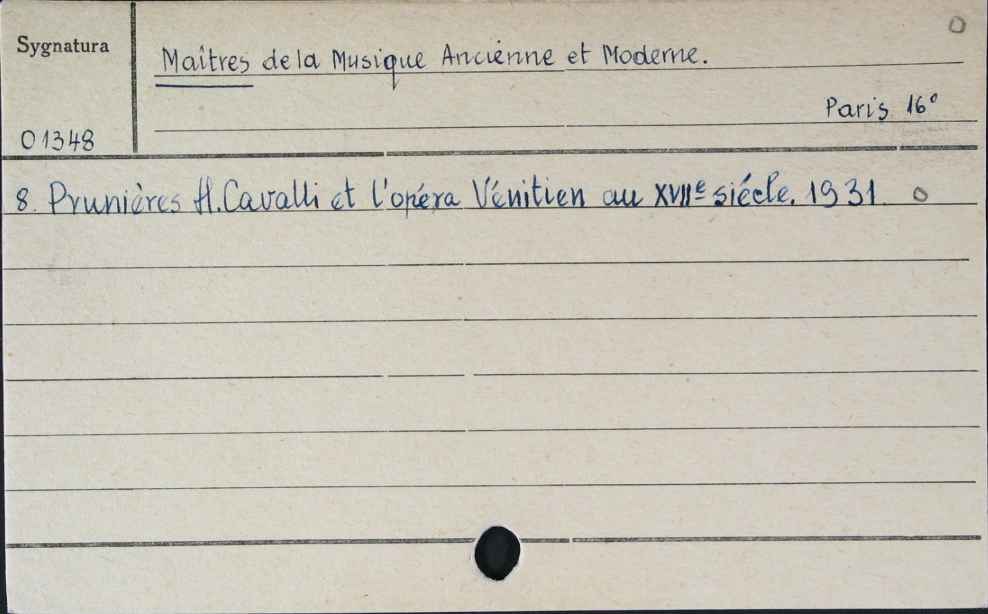 Sygnatura
Maîtres de la Musique Ancienne et Moderne.
Paris 16°
01348
8. Prunières H. Cavalli et l'opéra Vénitien au XVIIe siécle. 1931. o